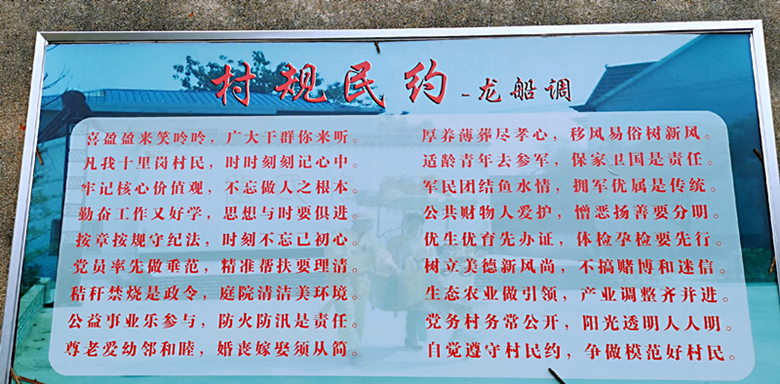 村规民约-龙船调
喜盈盈来笑吟吟，广大干群你来听。
凡我十里岗村民，时时刻刻记心中。
牢记核心价值观，不忘做人之根本。
勤奋工作又好学，思想与时要俱进。
按章按规守纪法，时刻不忘己初心。
党员率先做垂范，精准帮扶要理清。
秸秆禁烧是政令，庭院清洁美环境。
公益事业乐参与，防火防汛是责任。
尊老爱幼邻和睦，婚丧嫁娶须从简。
厚养薄葬尽孝心，移风易俗树新风。
适龄青年去参军，保家卫国是责任。
军民团结鱼水情，拥军优属是传统。
公共财物人爱护，憎恶扬善要分明。
优生优育先办证，体检孕检要先行。
树立美德新风尚，不搞赌博和迷信。
生态农业做引领，产业调整齐并进。
党务村务常公开，阳光透明人人明。
自觉遵守村民约，争做模范好村民。